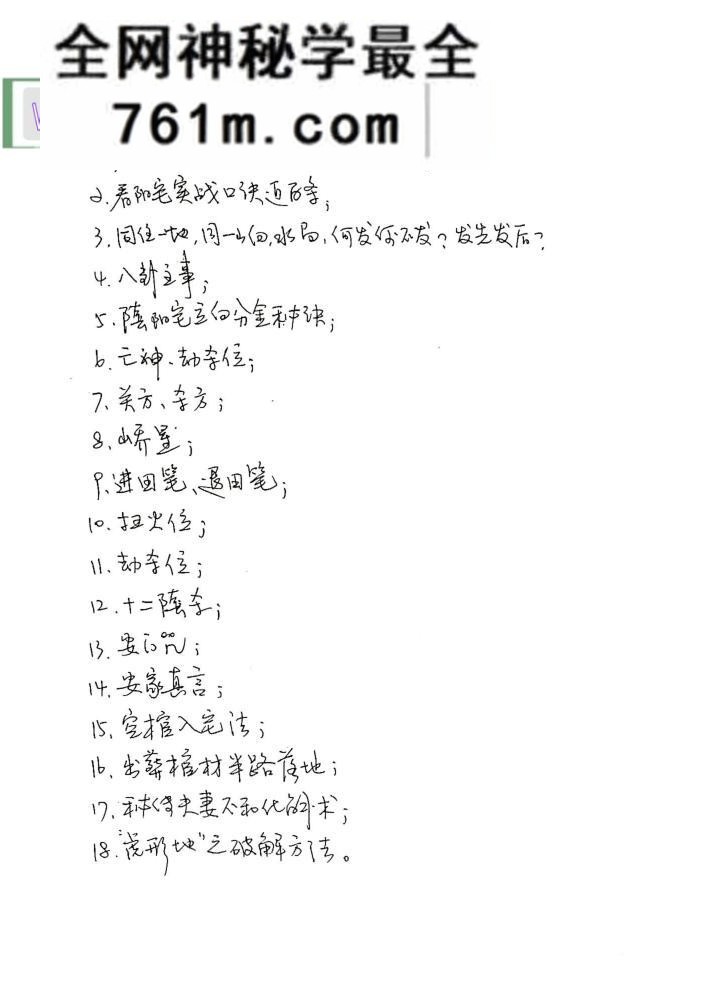 全网神秘学最全
761m.com
2.看阳宅实战口诀近百条;
3.同住一地,同一山向,水局,何发何不发?发先发后?
4.八卦主事;
5.阴阳宅立向分金秘诀;
6.亡神、劫杀位;
7.关方、杀方;
8.曜星;
9.进田笔、退田笔;
10.扫火位;
11.劫杀位;
12.十二阴杀;
13.安门咒;
14.安家真言;
15.空棺入宅法;
16.出葬棺材半路落地;
17.秘传夫妻不和化的术;
18."虎形地"之破解方法。